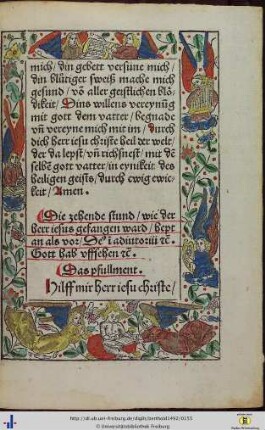 mich/ din gebett versüne mich/
din blůtiger sweiß mache mich
gesund/ vō aller geistlichen blö-
dikeit/ Dins willens vereynūg
mit gott dem vatter/ begnade
vñ vereyne mich mit im/ durch
dich herr iesu christe heil der welt/
der da lepst/ vñ richsnest/ mit dē
selbē gott vatter/ in eynikeit des
heiligen geists/ durch ewig ewic-
keit/ Amen.
Die zehende stund/ wie der
herr iesus gefangen ward/ hept
an als vor/ De⁹ ī adiutoriū ꝛc̄.
Gott hab vffsehen ꝛc̄.
Das psullment.
Hilff mir herr iesu christe/
http://dl.ub.uni-freiburg.de/diglit/bertholdi1492/0255
© Universitätsbibliothek Freiburg